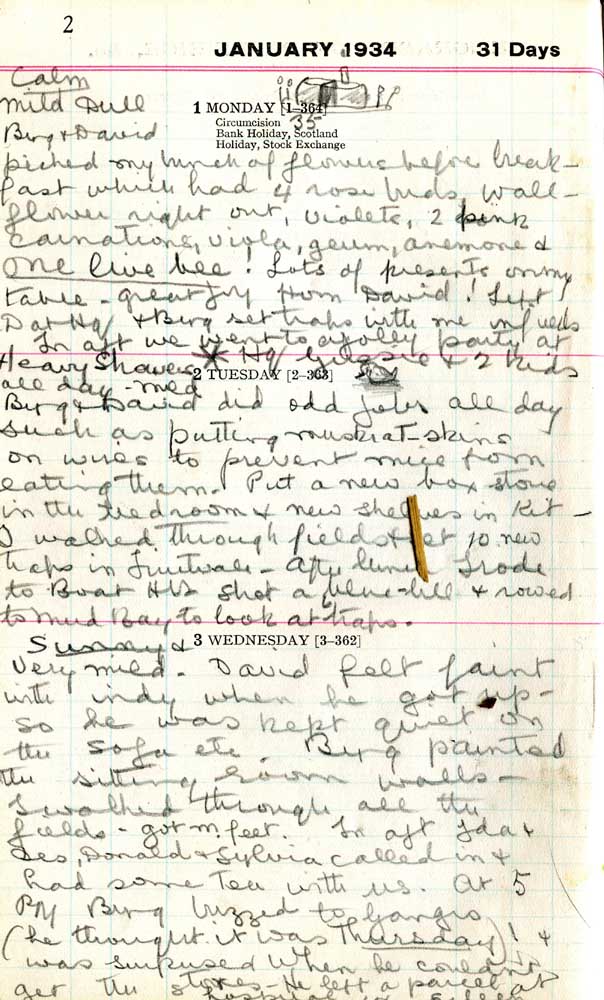 2
JANUARY 1934 31 Days
Calm
mild Dull
1 MONDAY [1–364]
35
Circumcision
Bank Holiday, Scotland
Holiday, Stock Exchange
Berg & David
picked my bunch of flowers before break-
fast which had 4 rose buds, wall-
flower right out, violets, 2 pink
carnations, viola, geum, anemone &
one live bee! Lots of presents on my
table - great joy from David! Left
D at Hq & Berg set traps with me in fields
In aft we went to a jolly party at
Heavy Showers Hq Gillespie & 2 kids
all day - mild
2 TUESDAY [2–363]
Berg & David did odd jobs all day
such as putting muskrat-skins
on wires to prevent mice from
eating them. Put a new box stove
in the tied room & new shelves in Kit-
I walked through fields & set 10 new
traps in Fruitvale - After lunch I rode
to Boat Hs shot a blue-bill & rowed
to Mud Bay to look at traps.
Sunny &
3 WEDNESDAY [3–362]
very mild - David felt faint
with indy when he got up -
so he was kept quiet on
the sofa etc. Berg painted
the sitting room walls -
I walked through all the
fields - got m. feet. In aft Ida &
Des, Donald & Sylvia called in &
had some Tea with us. At 5
PM Berg buzzed to Ganges
(he thought it was Thursday)! &
was surprised when he couldn't
get the stores - He left a parcel at